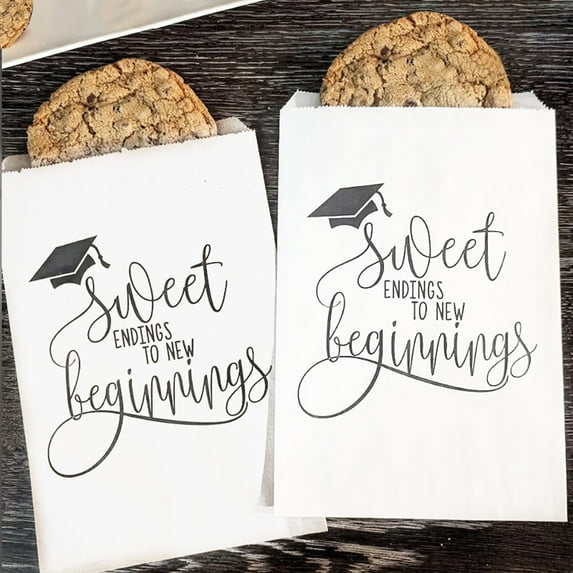 sweet
ENDINGS
TO NEW
beginnings
sweet
ENDINGS
TO NEW
beginnings